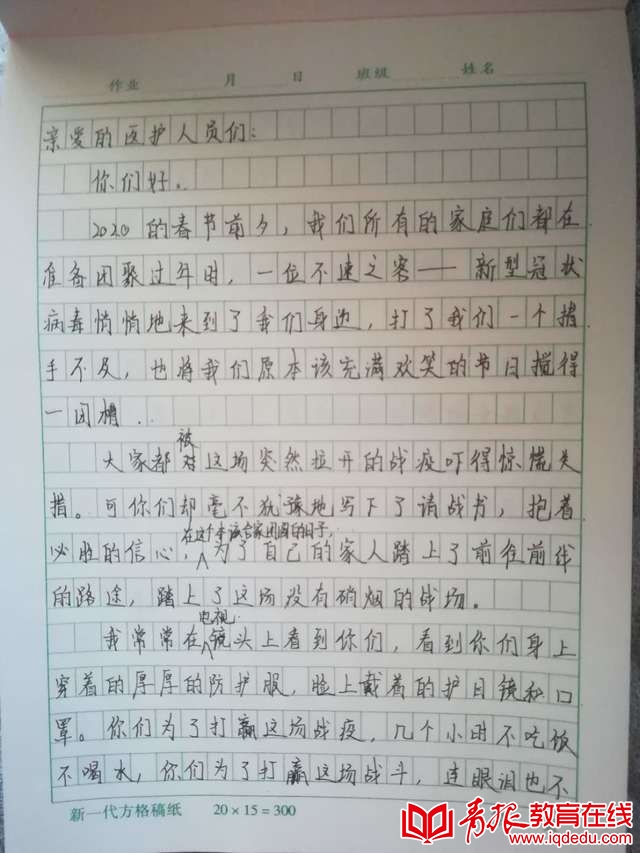 作业 月 日 班级 姓名
亲爱的医护人员们:
你们好。
2020的春节前夕,我们所有的家庭们都在
准备团聚过年时,一位不速之客——新型冠状
病毒悄悄地来到了我们身边,打了我们一个措
手不及,也将我们原本该充满欢笑的节日搅得
一团糟..
被
大家都对这场突然拉开的战疫吓得惊慌失
措。可你们却毫不犹豫地写下了请战书,抱着
在这个本该合家团圆的日子,
必胜的信心,为了自己的家人踏上了前往前线
的路途,踏上了这场没有硝烟的战场。
电视
我常常在镜头上看到你们,看到你们身上
穿着的厚厚的防护服,脸上戴着的护目镜和口
罩。你们为了打赢这场战疫,几个小时不吃饭
不喝水,你们为了打赢这场战斗,连眼泪也不
新一代方格稿纸 20×15=300
青报教育在线
www.iqdedu.com